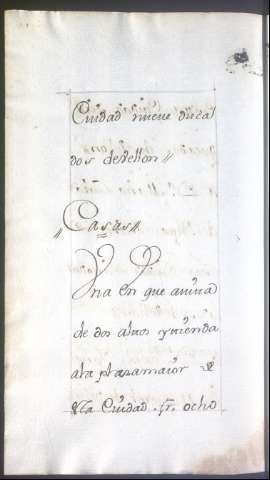 Ciudad nueve duca
dos devellon //
// Casas //
Vna en que auita
de dos altos y tienda
ala plaza maior
Ciudad fr. ocho